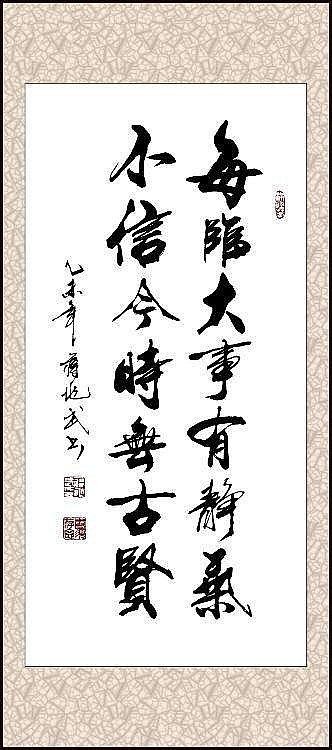 每臨大事有靜氣
不信今時無古賢
乙未年 武书